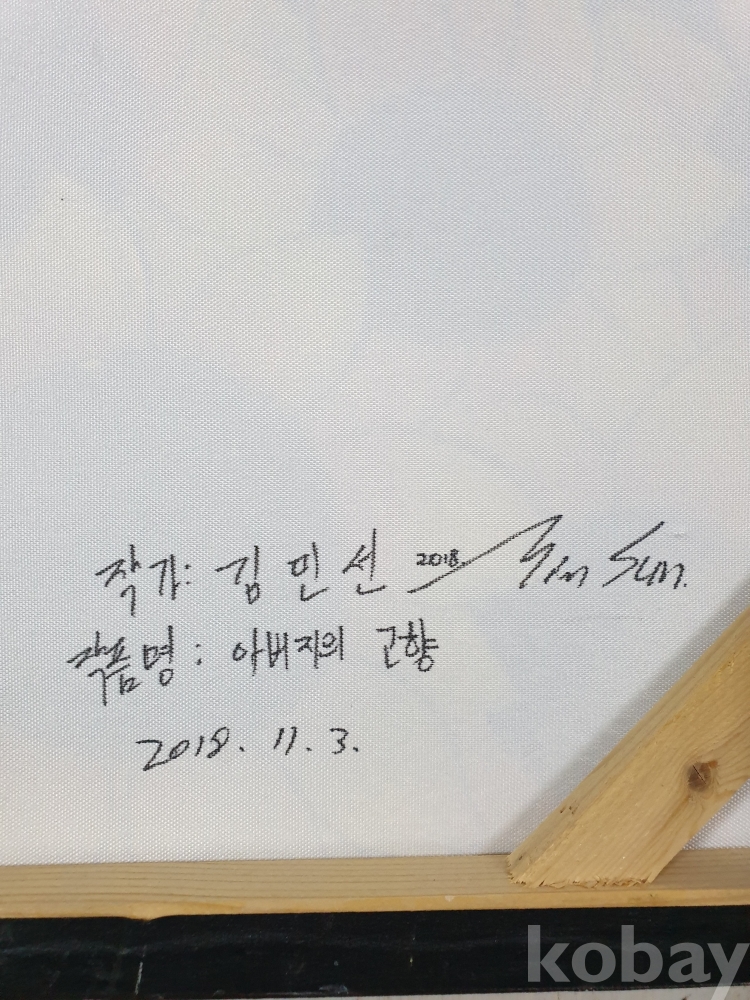 작가: 김민선 2018 Kim Sun.
작품명: 아버지의 고향
2018. 11. 3.
kobay